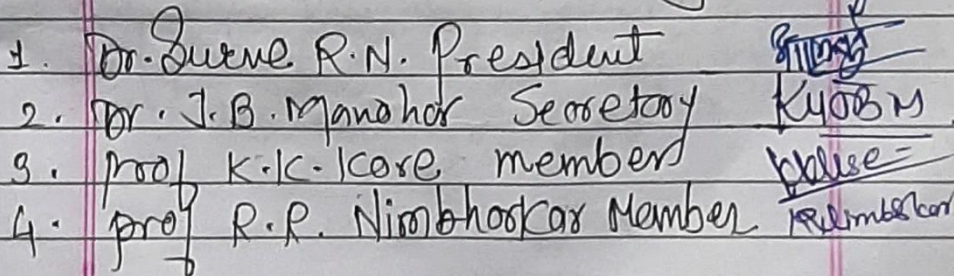 1. Dr. Surve R.N. President
2. Dr. J.B. Manohar Secretary
3. Prof K.K. Kare member
4. prof R.R. Nimbhorkar Member